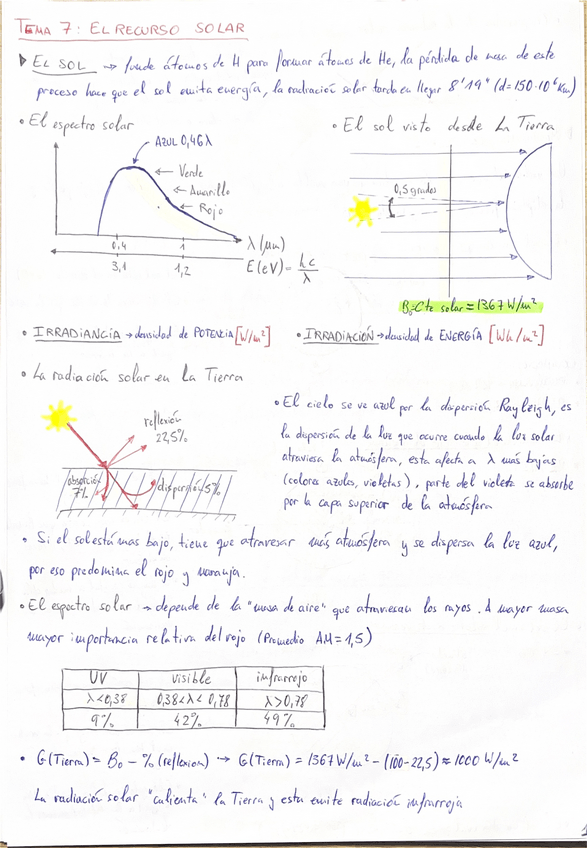 TEMA 7: EL RECURSO SOLAR
EL SOL → funde átomos de H para formar átomos de He, la pérdida de masa de este
proceso hace que el sol emita energía, la radiación solar tarda en llegar 8'19" (d=150·10⁶ Km)
• El espectro solar
• El sol visto desde La Tierra
AZUL 0,46λ
← Verde
← Amarillo
← Rojo
0,4 1 λ(μm)
3,1 1,2 E(eV) = hc/λ
0,5 grados
B₀=Cte solar = 1367 W/m²
• IRRADIANCIA → densidad de POTENCIA [W/m²]
• IRRADIACIÓN → densidad de ENERGÍA [Wh/m²]
• La radiación solar en la Tierra
reflexión
22,5%
absorción
7%
dispersión 5%
• El cielo se ve azul por la dispersión Rayleigh, es
la dispersión de la luz que ocurre cuando la luz solar
atraviesa la atmósfera, esta afecta a λ más bajas
(colores azules, violetas), parte del violeta se absorbe
por la capa superior de la atmósfera
• Si el sol está mas bajo, tiene que atravesar más atmósfera y se dispersa la luz azul,
por eso predomina el rojo y naranja.
• El espectro solar → depende de la "masa de aire" que atraviesan los rayos. A mayor masa
mayor importancia relativa del rojo (Promedio AM=1,5)
UV visible infrarrojo
λ<0,38 0,38<λ<0,78 λ>0,78
9% 42% 49%
• G(Tierra) = B₀ - %(reflexion) → G(Tierra) = 1367 W/m² - (100-22,5) ≈ 1000 W/m²
La radiación solar "calienta" la Tierra y esta emite radiación infrarroja